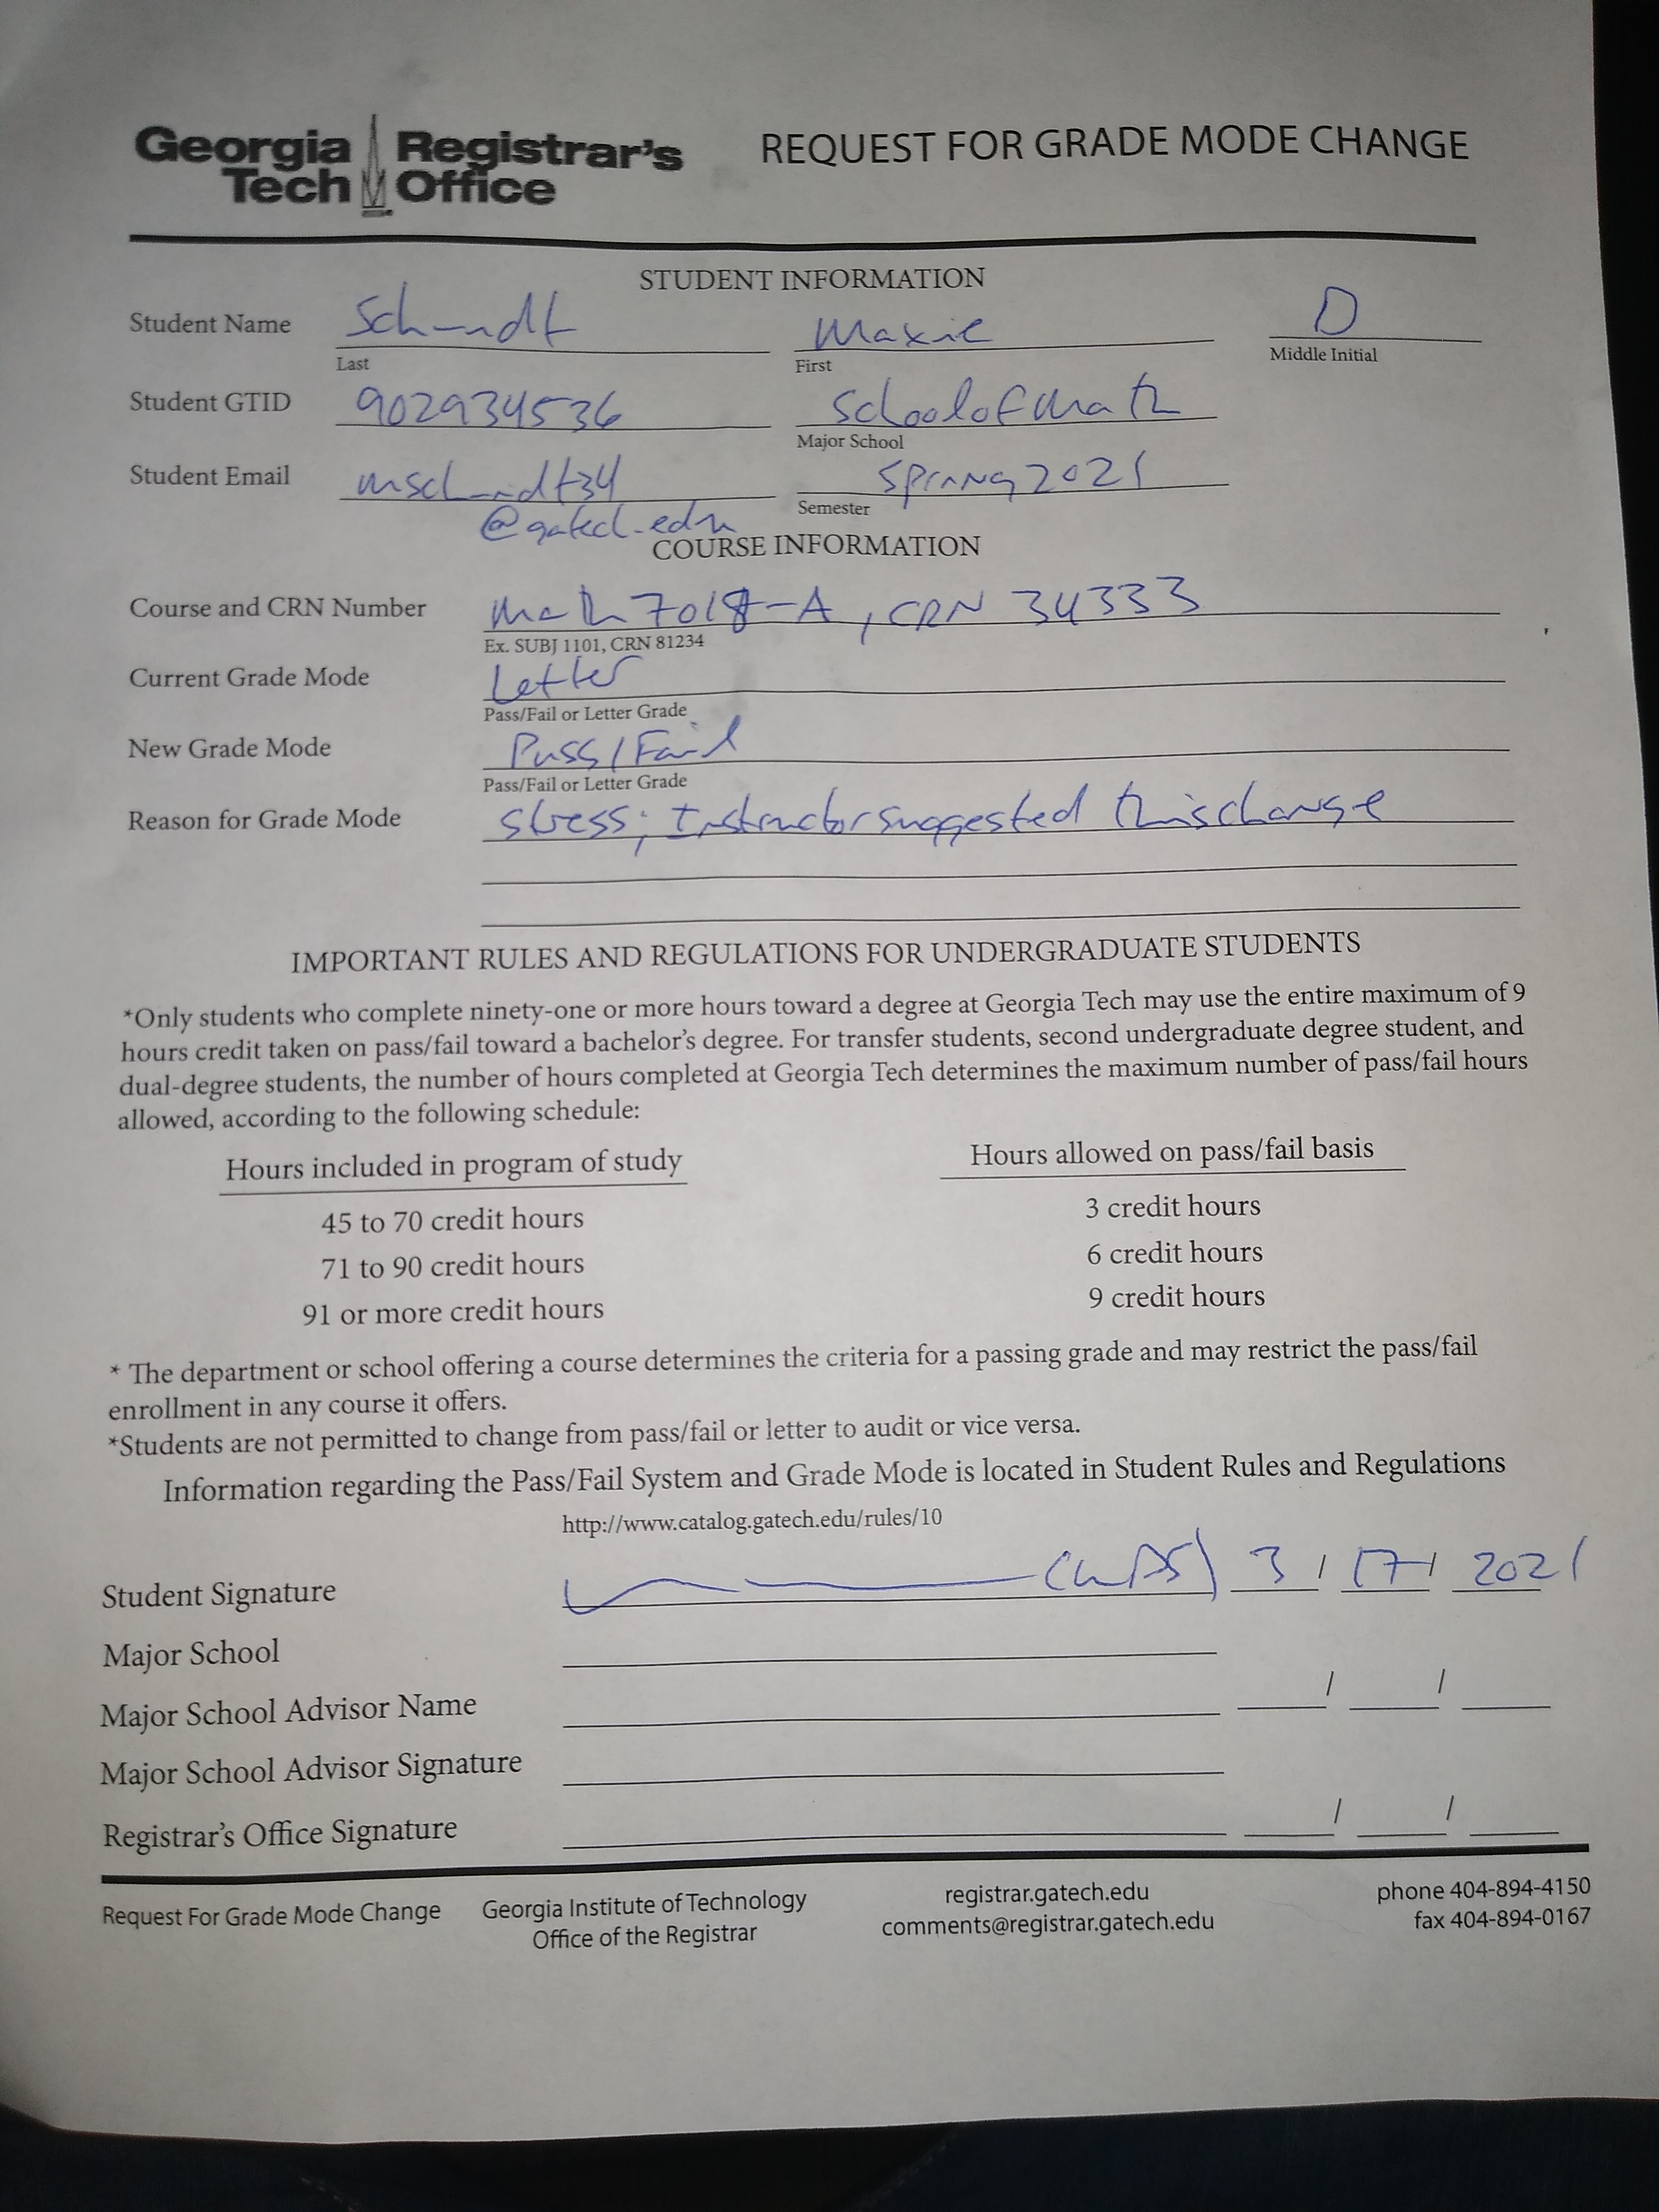 Georgia Tech Registrar's Office REQUEST FOR GRADE MODE CHANGE
STUDENT INFORMATION
Student Name Schmidt Maxie D
Last First Middle Initial
Student GTID 902934536 School of Math
Major School
Student Email mschmidt34 Spring 2021
@gatech.edu Semester
COURSE INFORMATION
Course and CRN Number Math 7018-A, CRN 34333
Ex. SUBJ 1101, CRN 81234
Current Grade Mode Letter
Pass/Fail or Letter Grade
New Grade Mode Pass/Fail
Pass/Fail or Letter Grade
Reason for Grade Mode Stress; Instructor suggested this change
IMPORTANT RULES AND REGULATIONS FOR UNDERGRADUATE STUDENTS
*Only students who complete ninety-one or more hours toward a degree at Georgia Tech may use the entire maximum of 9
hours credit taken on pass/fail toward a bachelor's degree. For transfer students, second undergraduate degree student, and
dual-degree students, the number of hours completed at Georgia Tech determines the maximum number of pass/fail hours
allowed, according to the following schedule:
Hours included in program of study Hours allowed on pass/fail basis
45 to 70 credit hours 3 credit hours
71 to 90 credit hours 6 credit hours
91 or more credit hours 9 credit hours
* The department or school offering a course determines the criteria for a passing grade and may restrict the pass/fail
enrollment in any course it offers.
*Students are not permitted to change from pass/fail or letter to audit or vice versa.
Information regarding the Pass/Fail System and Grade Mode is located in Student Rules and Regulations
http://www.catalog.gatech.edu/rules/10
Student Signature (MDS) 3 / 17 / 2021
Major School
Major School Advisor Name / /
Major School Advisor Signature
Registrar's Office Signature / /
Request For Grade Mode Change Georgia Institute of Technology registrar.gatech.edu phone 404-894-4150
Office of the Registrar comments@registrar.gatech.edu fax 404-894-0167